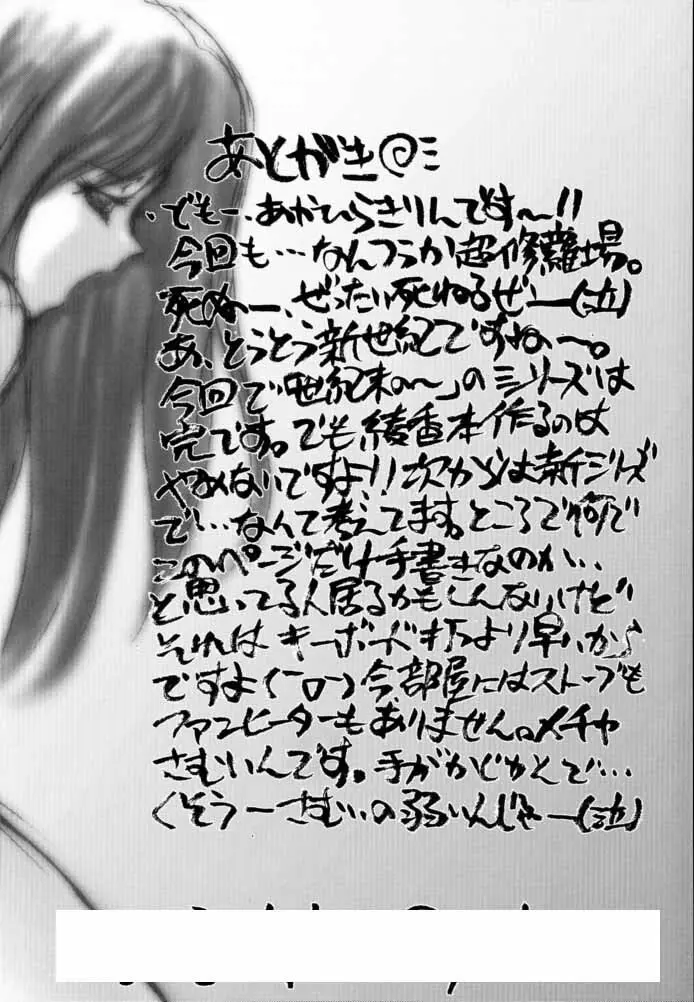 あとがき@ミ
、でもー、あかひらきりんです〜!!
今回も…なんつうか超修羅場。
死ぬー、ぜったい死ねるぜー(泣)
あ、とうとう新世紀ですねー。
今回で「世紀末の〜」のシリーズは
完です。でも綾香本作るのは
やめないですよ!!次からは新シリーズ
で…なんて考えてます。ところで何で
このページだけ手書きなのか…
と思いてる人居るかもしんないけど
それはキーボード打つより早いから
ですよ(ーロー)今、部屋にはストーブも
ファンヒーターもありません。メチャ
さむいんです。手がかじかんで…
くそうーさむいの弱いんじゃー(泣)